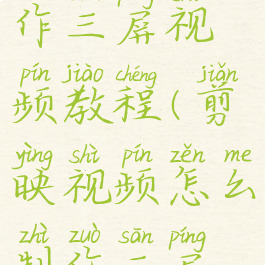 作三屏视
pín jiào chéng jiǎn
频教程(剪
yìng shì pín zěn me
映视频怎么
zhì zuò sān píng
制作三屏